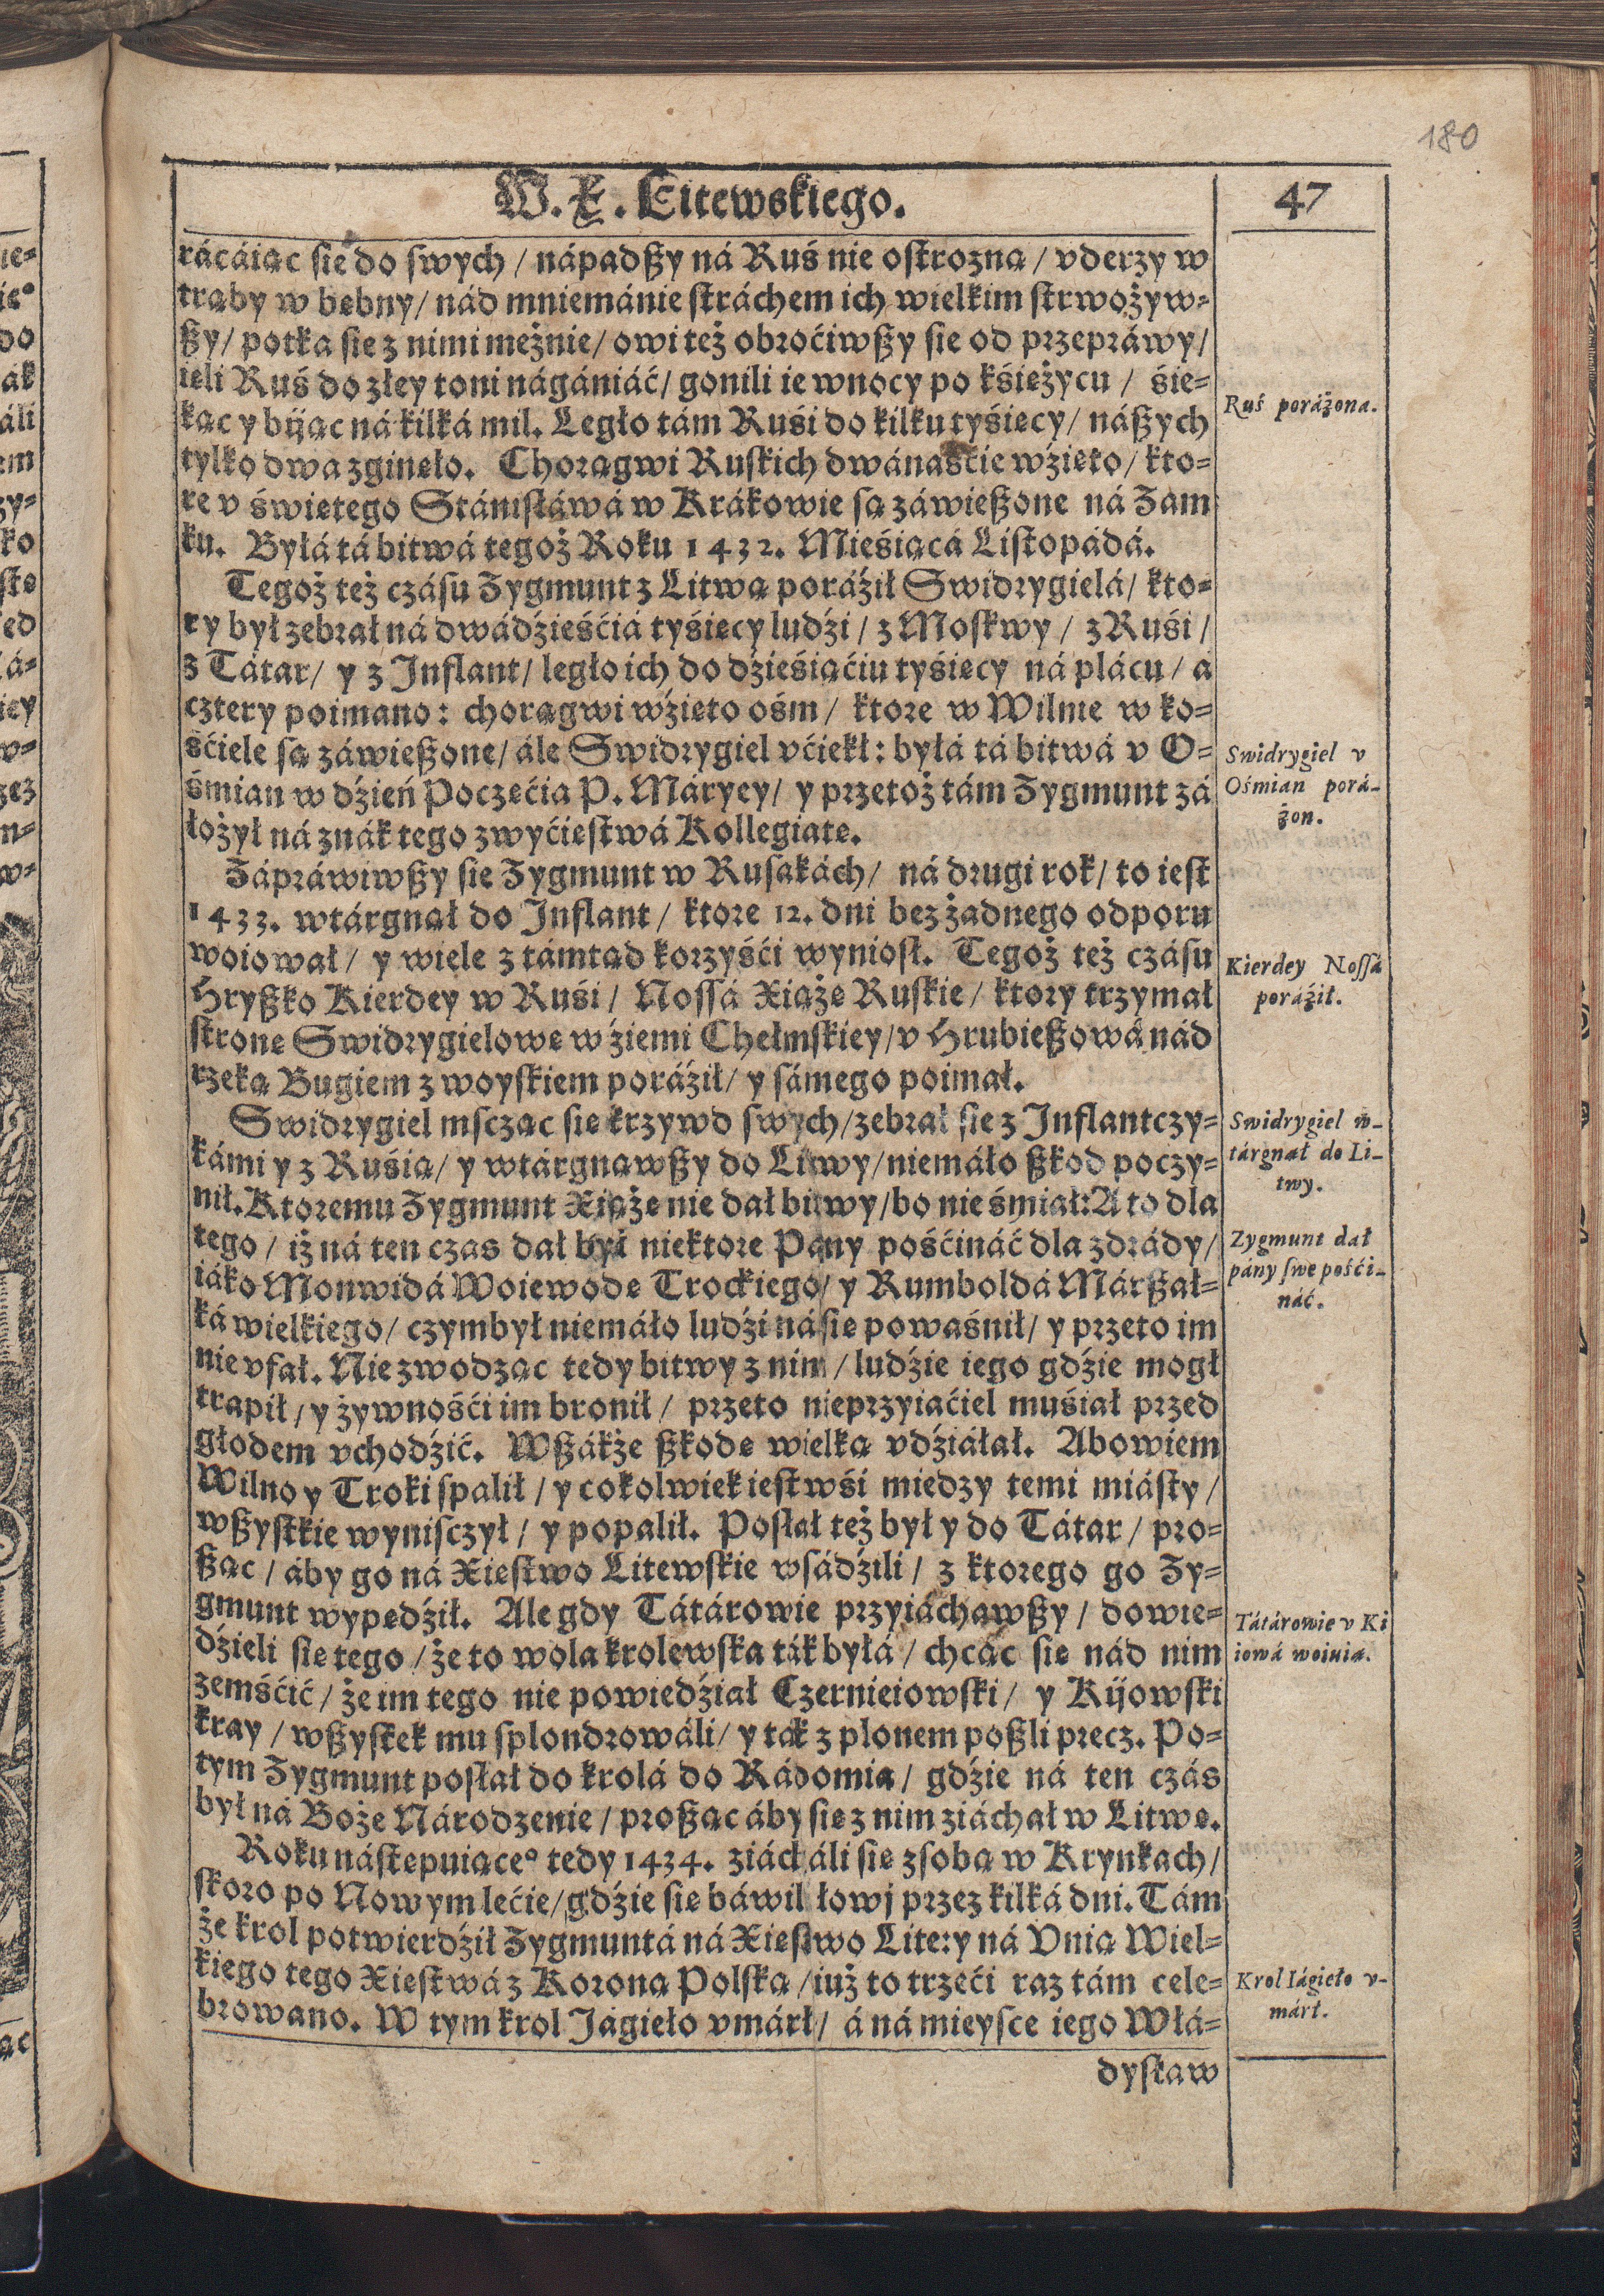 180
W. X. Litewskiego.
47
rácáiąc się do swych / nápadszy ná Ruś nie ostrozną / vderzy w
trąby w bębny / nád mniemánie stráchem ich wielkim strwożyw-
szy / potka się z nimi mężnie / owi też obroćiwszy się od przepráwy /
ięli Ruś do złey toni nágániáć / gonili ie wnocy po kśiężycu / śie-
kąc y biiąc ná kilká mil. Legło tám Ruśi do kilku tyśięcy / nászych
tylko dwa zginęło. Chorągwi Ruskich dwánaśćie wźięto / kto-
re v świętego Stánisłáwá w Krákowie są záwieszone ná Zam
ku. Byłá tá bitwá tegoż Roku 1432. Mieśiącá Listopádá.
Tegoż też czásu Zygmunt z Litwą poráźił Swidrygielá / kto-
ry był zebrał ná dwádźieśćiá tyśięcy ludźi / z Moskwy / z Ruśi /
z Tátar / y z Inflant / legło ich do dźieśiąćiu tyśięcy ná plácu / á
cztery poimano: chorągwi wźięto ośm / ktore w Wilnie w ko-
śćiele są záwieszone / ále Swidrygiel vćiekł: byłá tá bitwá v O-
śmian w dźień Poczęćia P. Máryey / y przetoż tám Zygmunt zá
łożył ná znák tego zwyćięstwá Kollegiatę.
Zápráwiwszy się Zygmunt w Rusakách / ná drugi rok / to iest
1433. wtárgnął do Inflant / ktore 12. dni bez żadnego odporu
woiował / y wiele z támtąd korzyśći wyniosł. Tegoż też czásu
Hryszko Kierdey w Ruśi / Nossá Xiążę Ruskie / ktory trzymał
stronę Swidrygielowę w źiemi Chełmskiey / v Hrubieszowá nád
rzeką Bugiem z woyskiem poráźił / y sámego poimał.
Swidrygiel mscząc się krzywd swych / zebrał się z Inflantczy-
kámi y z Ruśią / y wtárgnąwszy do Litwy / niemáło szkod poczy-
nił. Ktoremu Zygmunt Xiążę nie dał bitwy / bo nie śmiał: A to dla
tego / iż ná ten czas dał był niektore Pány pośćináć dla zdrády /
iáko Monwidá Woiewodę Trockiego / y Rumboldá Márszał-
ká wielkiego / czym był niemáło ludźi ná się powaśnił / y przeto im
nie vfał. Nie zwodząc tedy bitwy z nim / ludźie iego gdźie mogł
trapił / y żywnośći im bronił / przeto nieprzyiaćiel muśiał przed
głodem vchodźić. Wszákże szkodę wielką vdźiáłał. Abowiem
Wilno y Troki spalił / y cokolwiek iest wśi miedzy temi miásty /
wszystkie wynisczył / y popalił. Posłał też był y do Tátar / pro-
sząc / áby go ná Xięstwo Litewskie wsádźili / z ktorego go Zy-
gmunt wypędźił. Ale gdy Tátárowie przyiáchawszy / dowie-
dźieli się tego / że to wola krolewska ták byłá / chcąc się nád nim
zemśćić / że im tego nie powiedźiał Czernieiowski / y Kiiowski
kray / wszystek mu splondrowáli / y ták z plonem poszli precz. Po-
tym Zygmunt posłał do krolá do Rádomia / gdźie ná ten czás
był ná Boże Národzenie / prosząc áby się z nim ziáchał w Litwę.
Roku nástępuiąceº tedy 1434. ziácháli się z sobą w Krynkach /
skoro po Nowym lećie / gdźie się báwił łowy przez kilká dni. Tám
że krol potwierdźił Zygmuntá ná Xięstwo Litery ná Vnią Wiel-
kiego tego Xięstwá z Koroną Polską / iuż to trzeći raz tám cele-
browano. W tym krol Jágieło vmárł / á ná mieysce iego Włá-
dysław
Ruś poráżona.
Swidrygiel v
Ośmian porá-
żon.
Kierdey Nossá
poráźił.
Swidrygiel w-
tárgnął do Li-
twy.
Zygmunt dał
pány swe pośći-
náć.
Tátárowie v Ki
iowá woiuią.
Krol Iágieło v-
márł.